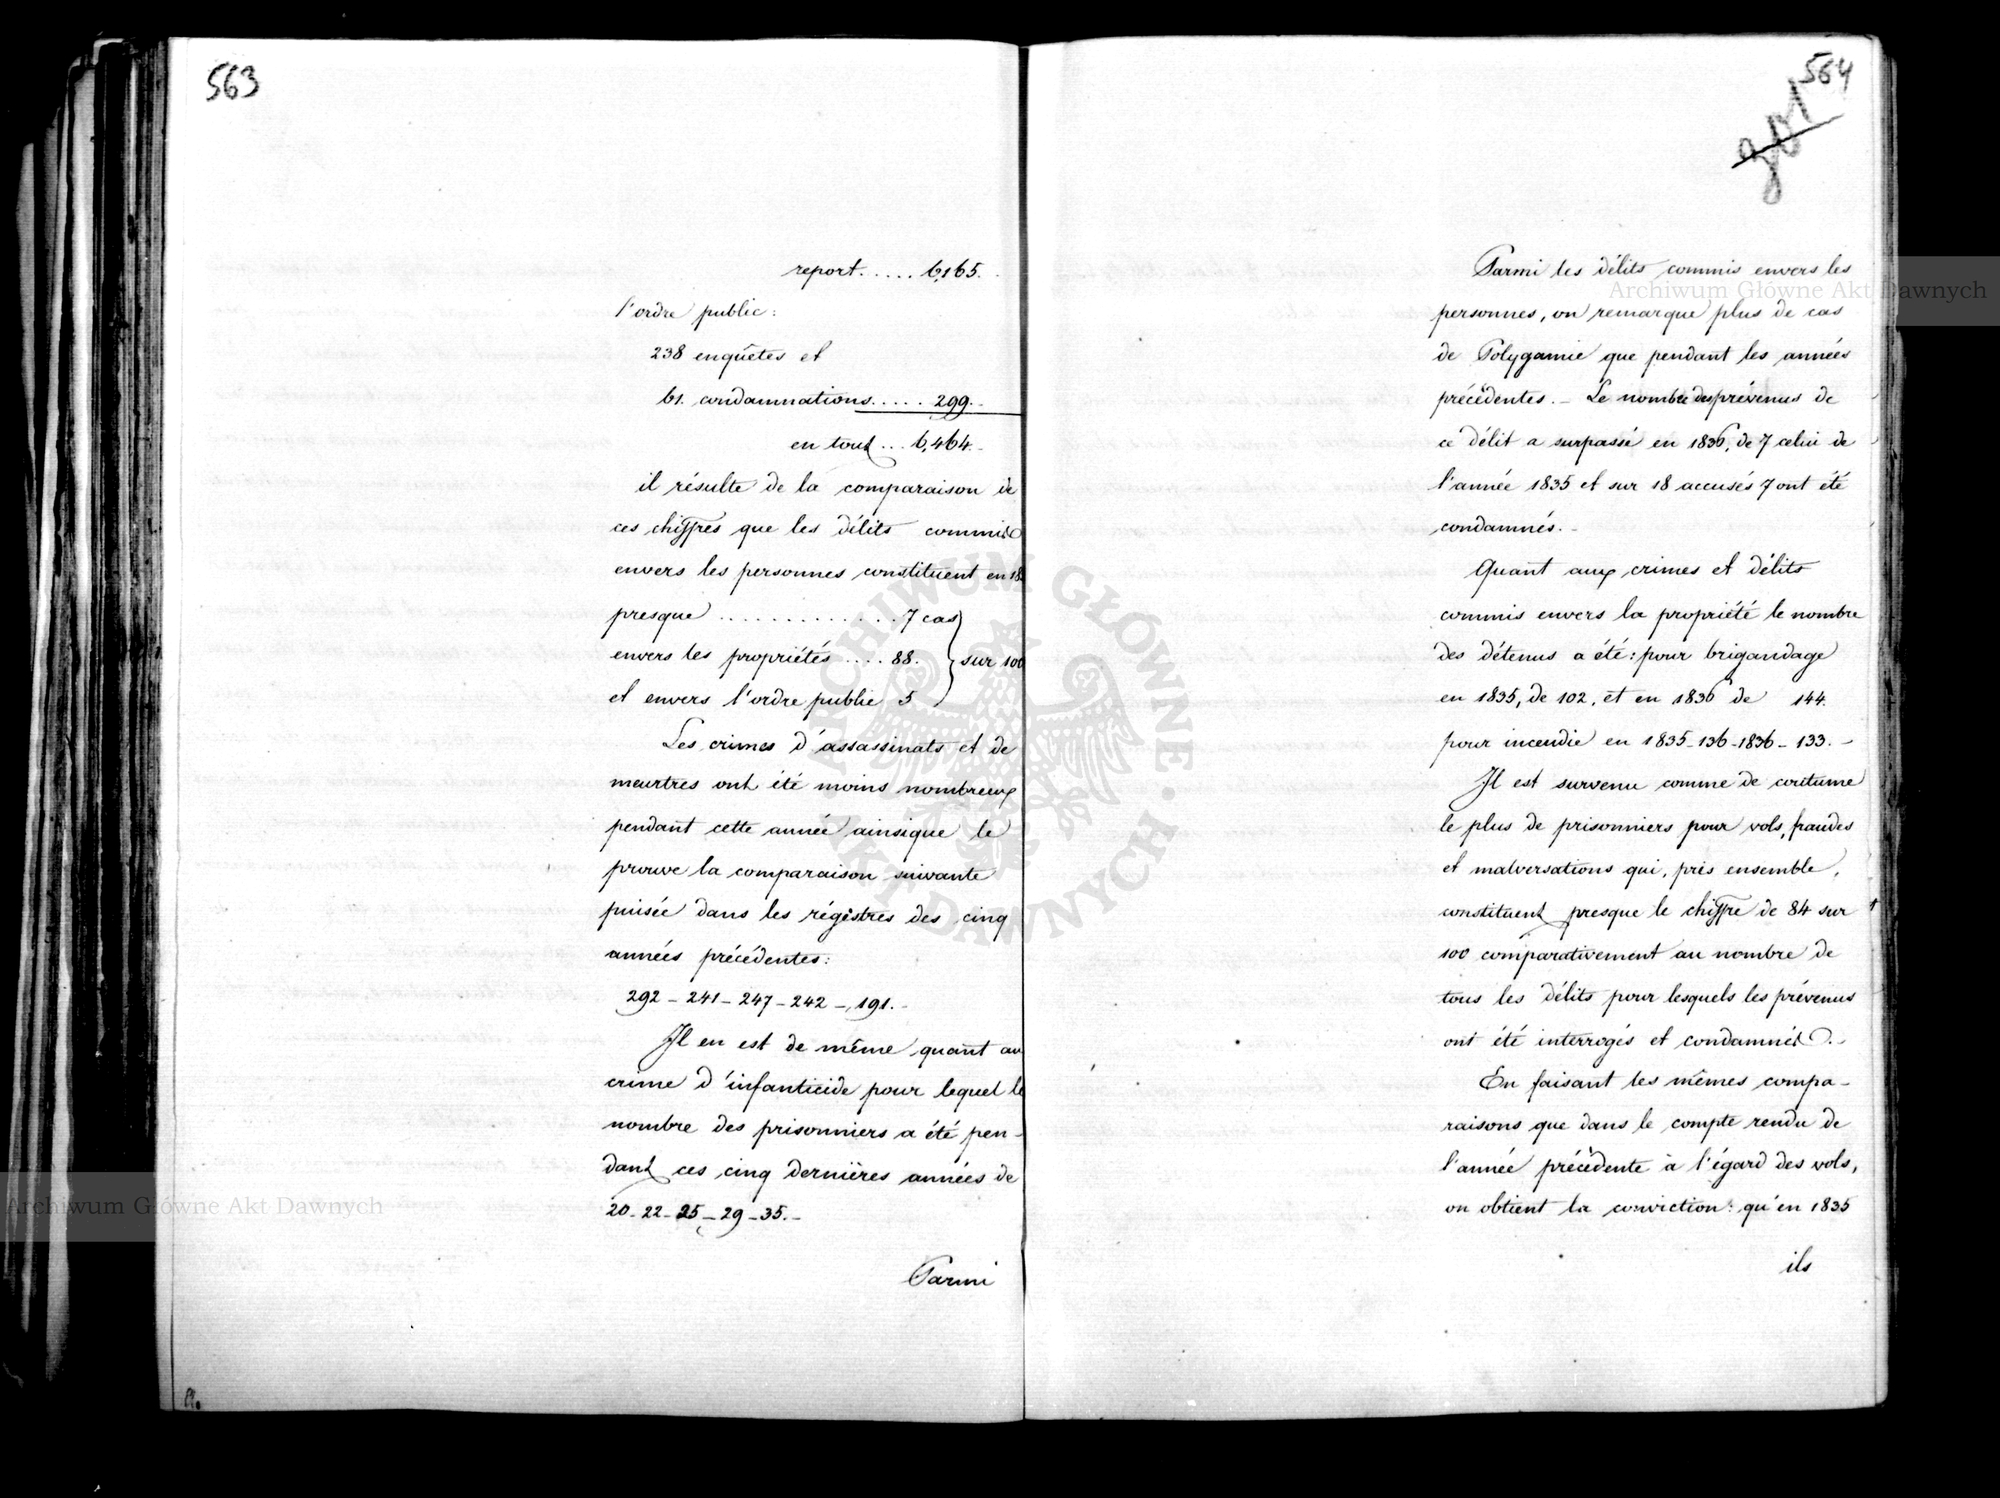 563
report..... 6,165.
l'ordre public:
238 enquêtes et
61. condamnations..... 299.-
en tout... 6,464.-
il résulte de la comparaison de
ces chiffres que les délits commis
envers les personnes constituent en 18
presque ............. 7 cas
envers les propriétés .... 88. } sur 100
et envers l'ordre public 5
Les crimes d'assassinats et de
meurtres ont été moins nombreux
pendant cette année ainsique le
prouve la comparaison suivante
puisée dans les régistres des cinq
années précédentes:
292 - 241 - 247 - 242 - 191.-
Il en est de même quant au
crime d'infanticide pour lequel le
nombre des prisonniers a été pen-
dant ces cinq dernières années de
20 - 22 - 25 - 29 - 35.-
Parmi
564
Parmi les délits commis envers les
personnes, on remarque plus de cas
de Polygamie que pendant les années
précédentes.- Le nombre des prévenus de
ce délit a surpassé en 1836, de 7 celui de
l'année 1835 et sur 18 accusés 7 ont été
condamnés.-
Quant aux crimes et délits
commis envers la propriété le nombre
des détenus a été: pour brigandage
en 1835, de 102, et en 1836 de 144.
pour incendie en 1835 - 136 - 1836 - 133.-
Il est survenu comme de coutume
le plus de prisonniers pour vols, fraudes
et malversations qui, pris ensemble,
constituent presque le chiffre de 84 sur
100 comparativement au nombre de
tous les délits pour lesquels les prévenus
ont été interrogés et condamnés.-
En faisant les mêmes compa-
raisons que dans le compte rendu de
l'année précédente à l'égard des vols,
on obtient la conviction: qu'en 1835
ils
Archiwum Główne Akt Dawnych
Archiwum Główne Akt Dawnych
ARCHIWUM GŁÓWNE AKT DAWNYCH